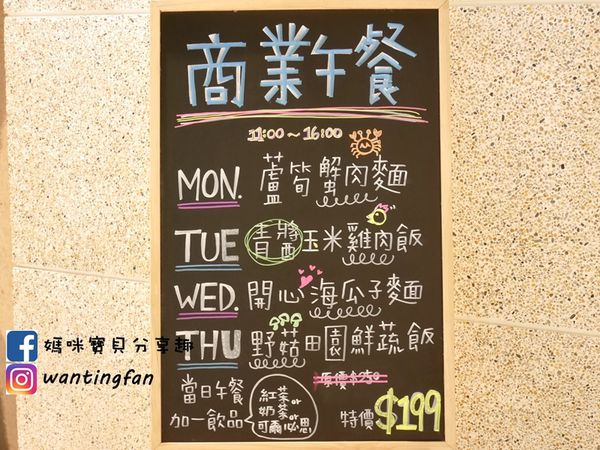 商業午餐
11:00~16:00
MON. 蘆筍蟹肉麵
TUE 青醬玉米雞肉飯
WED. 開心海瓜子麵
THU 野菇田園鮮蔬飯
原價$250
當日午餐
加一飲品
紅茶or
奶茶or
可爾必思
特價 $199
媽咪寶貝分享趣
wantingfan